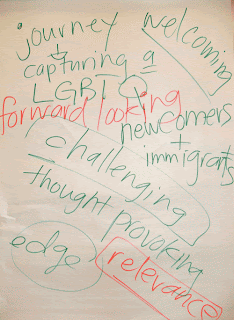 journey
welcoming
+
capturing a
LGBTQ
forward looking
newcomers
+
immigrants
challenging
thought provoking
edge
relevance